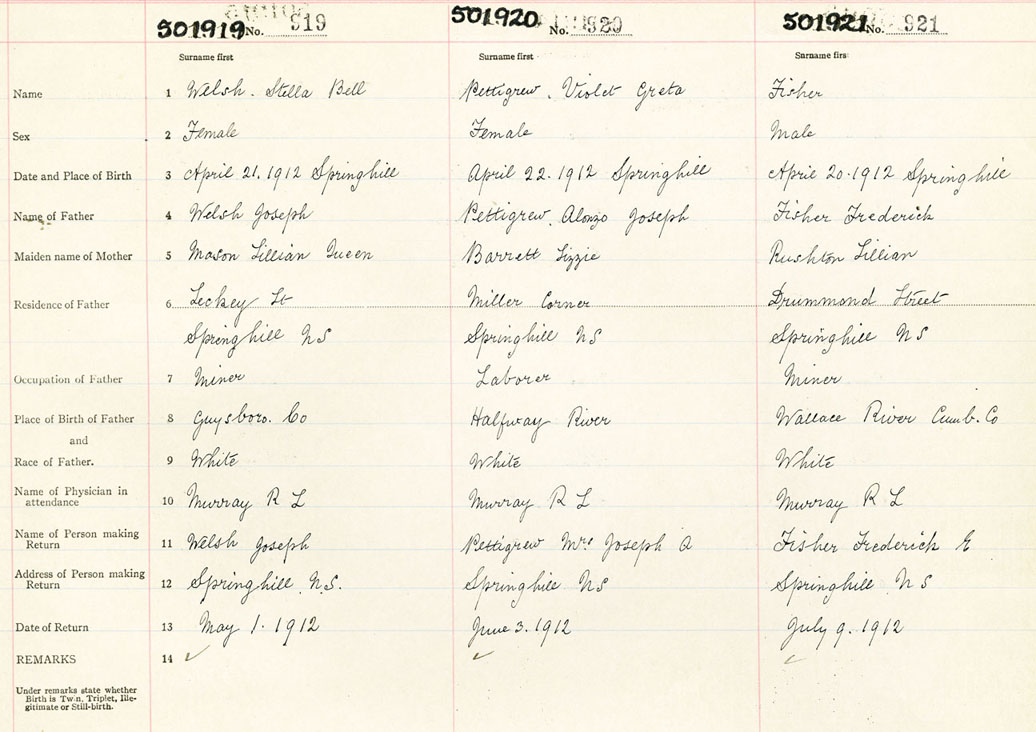 501919 No. 919 501920 No. 920 501921 No. 921
Surname first Surname first Surname firs
Name 1 Welsh. Stella Bell Pettigrew. Violet Greta Fisher
Sex 2 Female Female Male
Date and Place of Birth 3 April 21. 1912 Springhill April 22. 1912 Springhill April 20. 1912 Springhill
Name of Father 4 Welsh Joseph Pettigrew. Alonzo Joseph Fisher Frederick
Maiden name of Mother 5 Mason Lillian Queen Barrett Lizzie Rushton Lillian
Residence of Father 6 Leckey St Miller Corner Drummond Street
Springhill NS Springhill NS Springhill NS
Occupation of Father 7 Miner Laborer Miner
Place of Birth of Father 8 Guysboro. Co Halfway River Wallace River Cumb. Co
and
Race of Father. 9 White White White
Name of Physician in
attendance 10 Murray R L Murray R L Murray R L
Name of Person making
Return 11 Welsh Joseph Pettigrew Mrs Joseph A Fisher Frederick E
Address of Person making
Return 12 Springhill. N.S. Springhill NS Springhill NS
Date of Return 13 May 1. 1912 June 3. 1912 July 9. 1912
REMARKS 14 ✓ ✓ ✓
Under remarks state whether
Birth is Twin, Triplet, Ille-
gitimate or Still-birth.